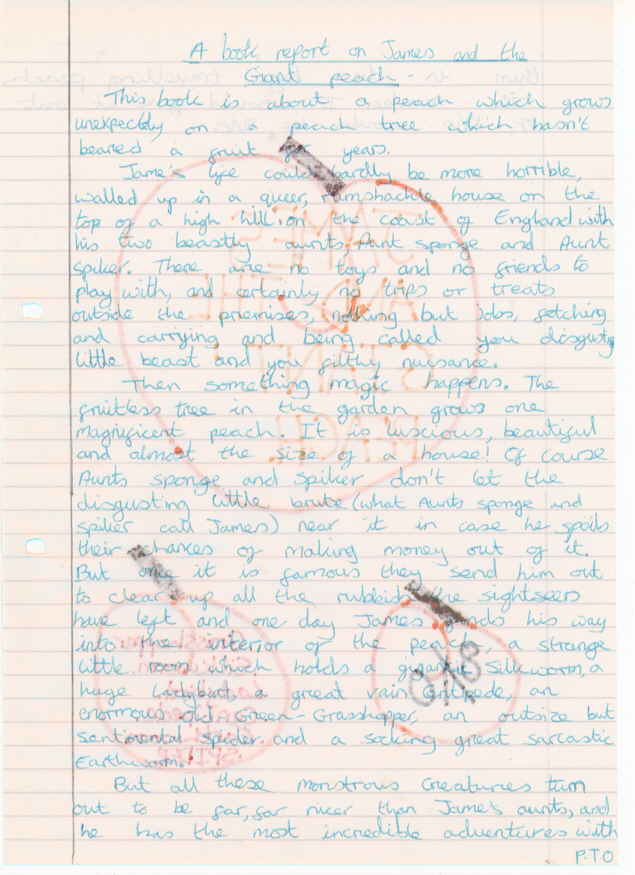 A book report on James and the
Giant peach -
This book is about a peach which grows
unexpectedly on a peach tree which hasn't
beared a fruit for years.
James life could hardly be more horrible,
walled up in a queer, ramshackle house on the
top of a high hill on the coast of England with
his two beastly aunts, Aunt sponge and Aunt
spiker. There are no toys and no friends to
play with, and certainly no trips or treats
outside the premises, nothing but jobs, fetching
and carrying and being called you disgusting
little beast and you filthy nuisance.
Then something magic happens. The
fruitless tree in the garden grows one
magnificent peach. It is luscious, beautiful
and almost the size of a house! Of course
Aunts sponge and spiker don't let the
disgusting little brute (what Aunts sponge and
spiker call James) near it in case he spoils
their chances of making money out of it.
But once it is famous they send him out
to clear up all the rubbish the sightseers
have left and one day James finds his way
into the interior of the peach to a strange
little room which holds a gigantic Silkworm, a
huge Ladybird, a great vain Centipede, an
enormous old Green-Grasshopper, an outsize but
sentimental spider and a socking great sarcastic
Earthworm.
But all these monstrous Creatures turn
out to be far, far nicer than James's aunts, and
he has the most incredible adventures with
P.T.O